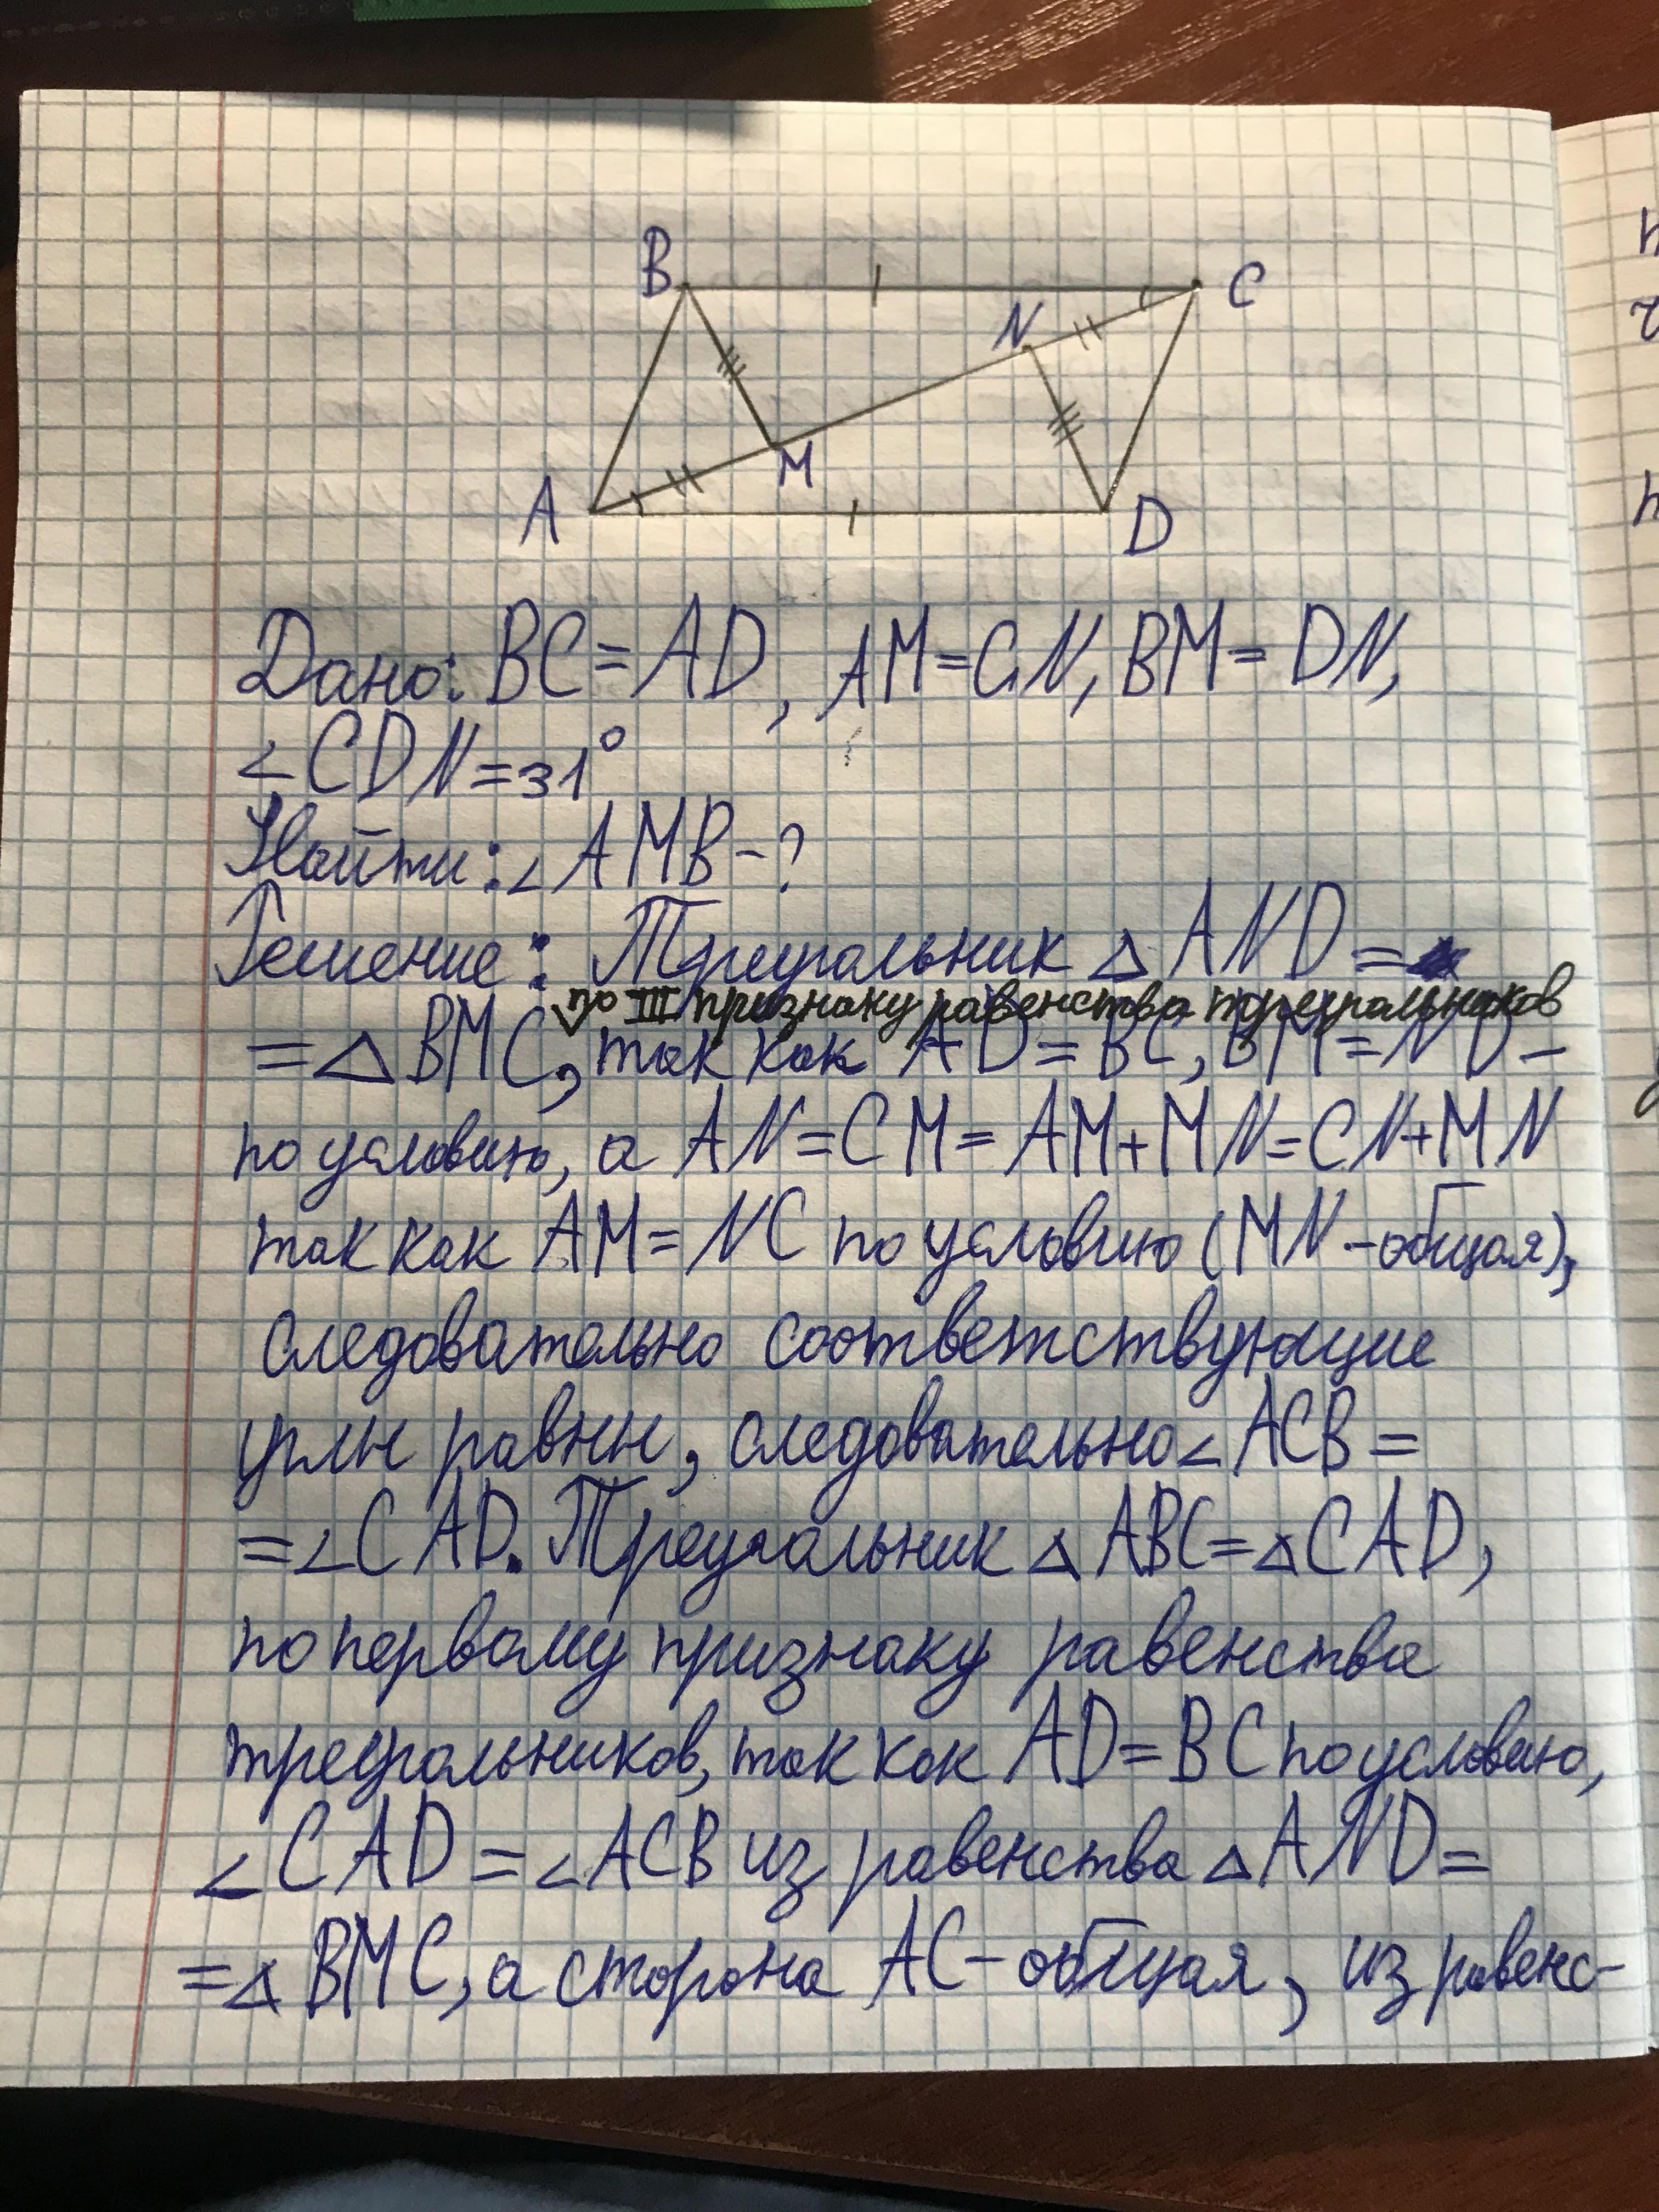 B
C
N
M
A
D
Дано: BC=AD, AM=CN, BM=DN,
∠CDN=31°
Найти: ∠AMB-?
Решение: Треугольник △AND=
по III признаку равенства треугольников
=△BMC, так как AD=BC, BM=ND-
по условию, а AN=CM=AM+MN=CN+MN
так как AM=NC по условию (MN-общая),
следовательно соответствующие
углы равны, следовательно ∠ACB=
=∠CAD. Треугольник △ABC=△CAD,
по первому признаку равенства
треугольников, так как AD=BC по условию,
∠CAD=∠ACB из равенства △AND=
=△BMC, а сторона AC-общая, из равенс-